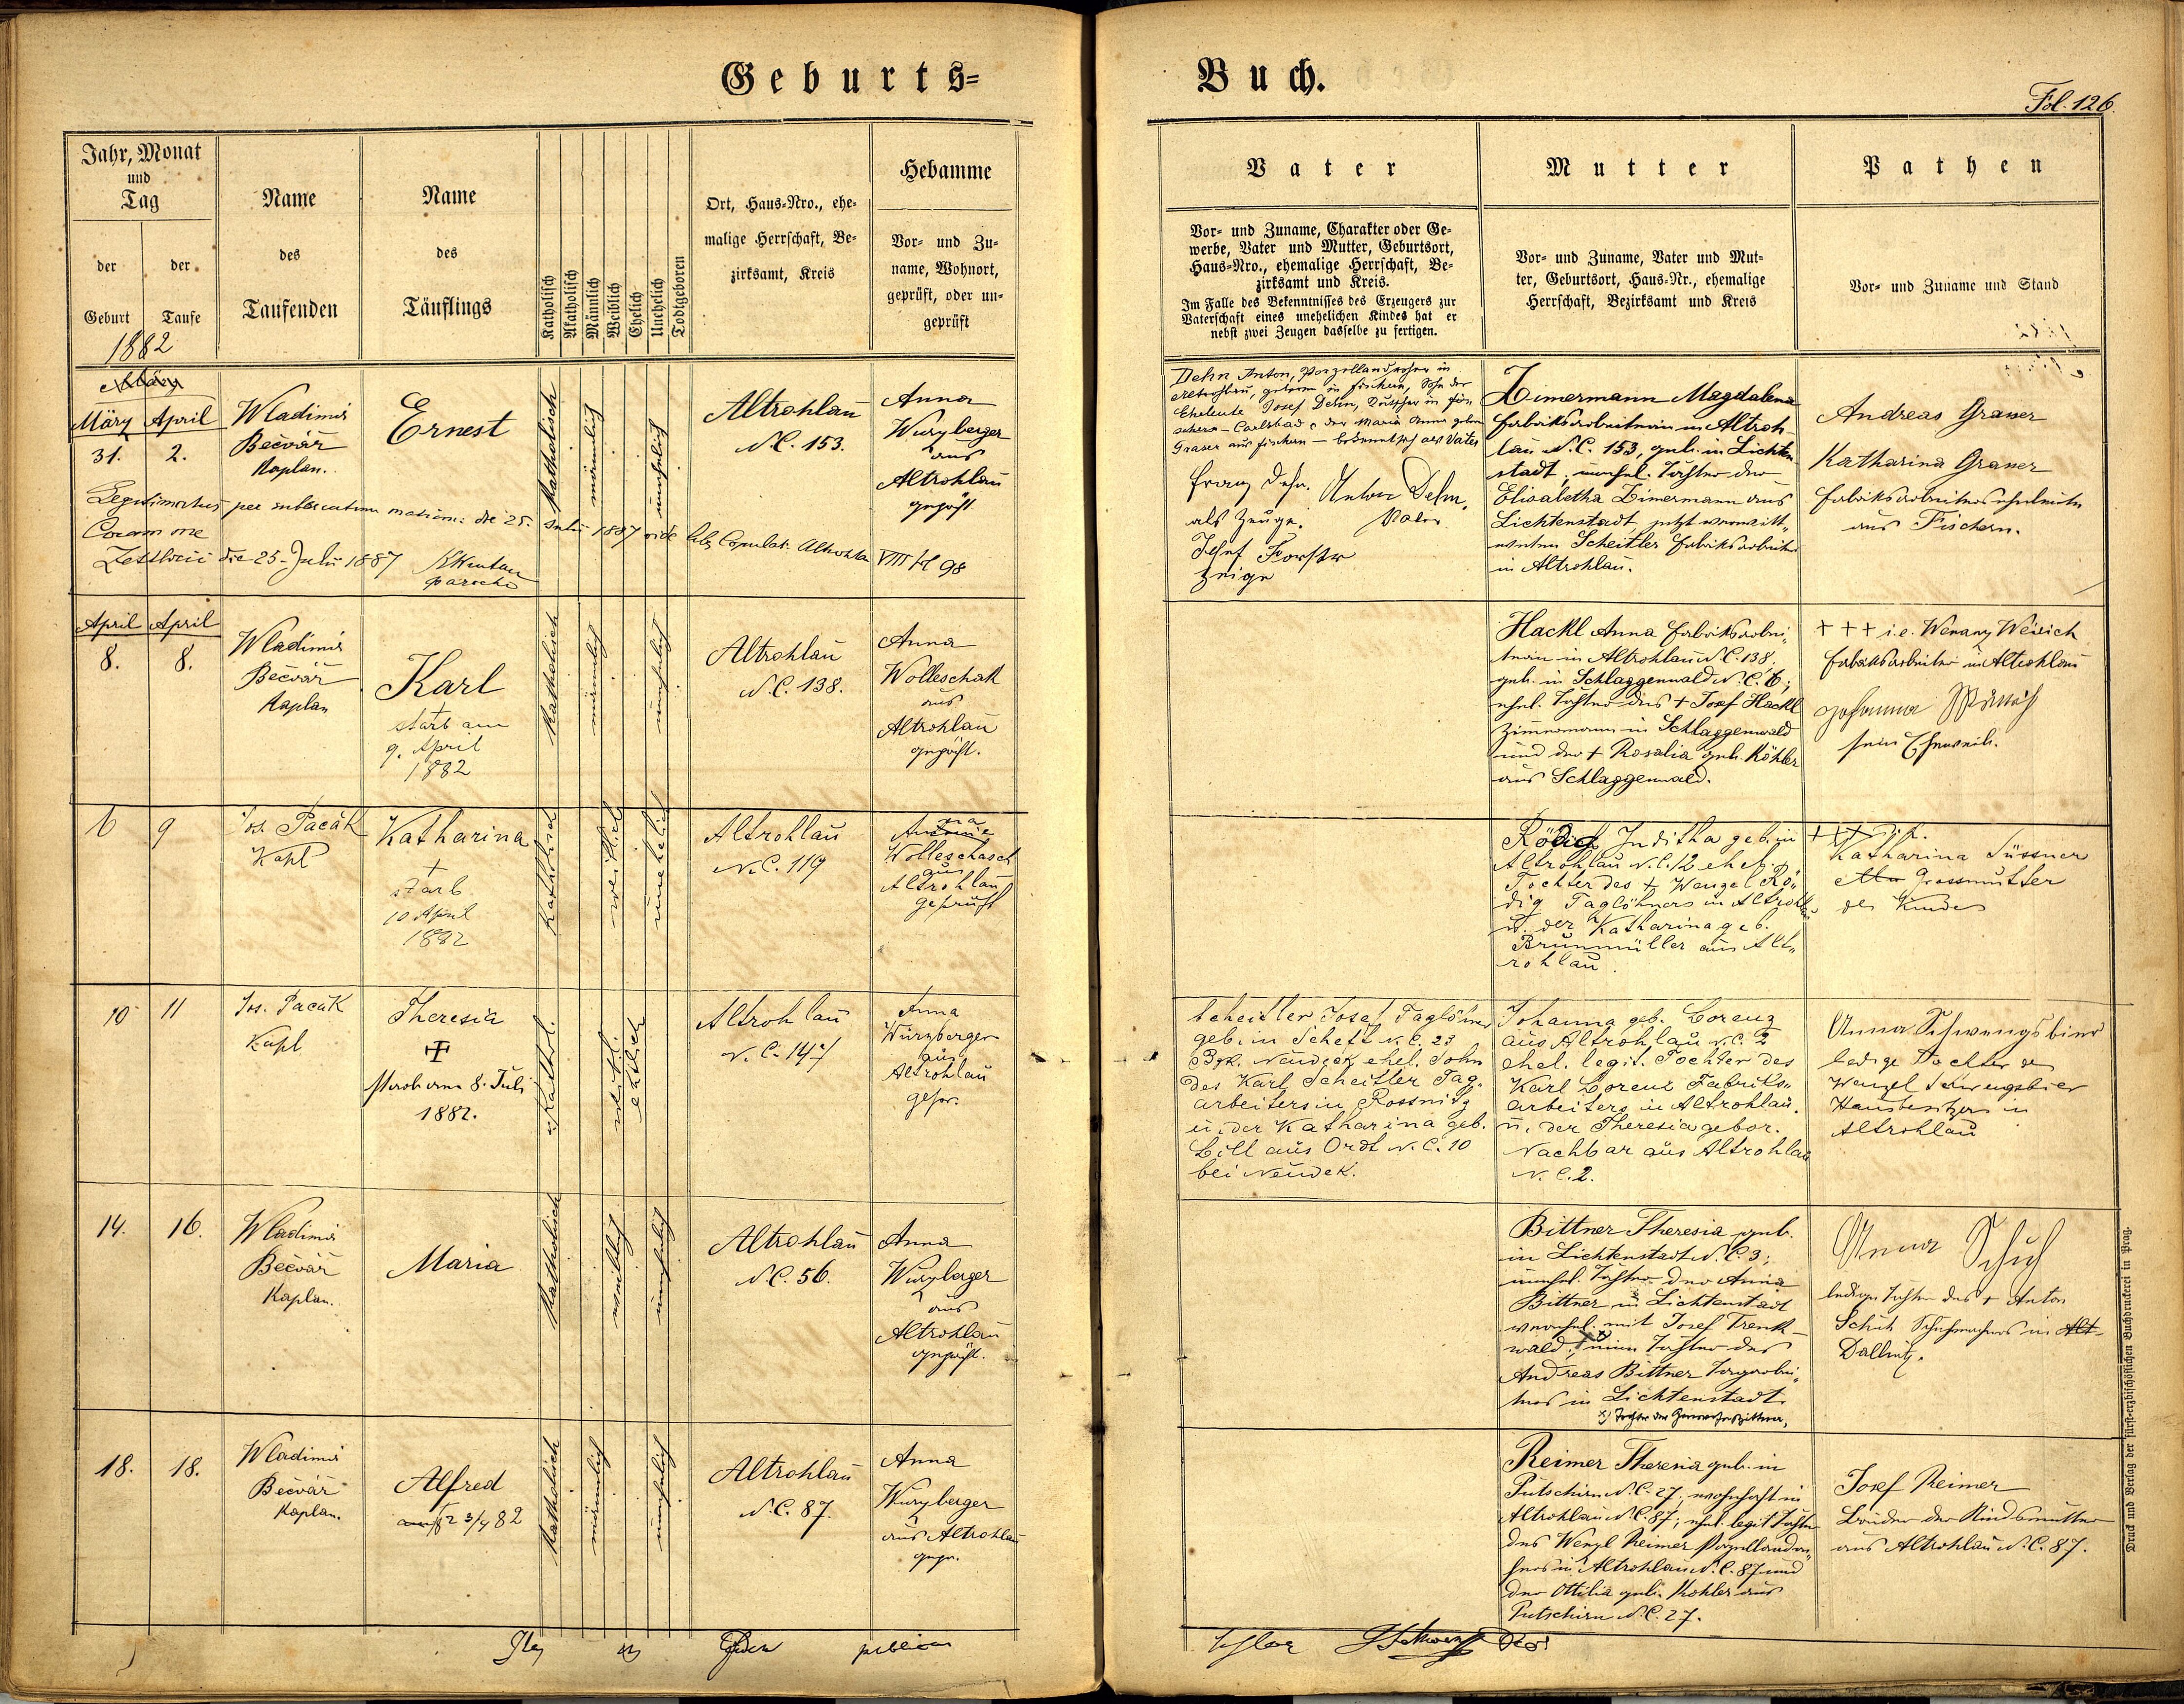 Geburts=
Buch.
Fol. 126
Jahr, Monat
und
Tag
der
Geburt
der
Taufe
1882
Name
des
Taufenden
Name
des
Täuflings
Katholisch
Akatholisch
Männlich
Weiblich
Ehelich
Unehelich
Todtgeboren
Ort, Haus=Nro., ehe=
malige Herrschaft, Be=
zirksamt, Kreis
Hebamme
Vor= und Zu=
name, Wohnort,
geprüft, oder un=
geprüft
Vater
Vor= und Zuname, Charakter oder Ge=
werbe, Vater und Mutter, Geburtsort,
Haus=Nro., ehemalige Herrschaft, Be=
zirksamt und Kreis.
Im Falle des Bekenntnisses des Erzeugers zur
Vaterschaft eines unehelichen Kindes hat er
nebst zwei Zeugen dasselbe zu fertigen.
Mutter
Vor= und Zuname, Vater und Mut=
ter, Geburtsort, Haus=Nr., ehemalige
Herrschaft, Bezirksamt und Kreis
Pathen
Vor= und Zuname und Stand
März
März April
31. 2.
Wladimir
Bečvář
Kaplan.
Ernest
Katholisch
männlich
unehelich
Altrohlau
N.C. 153.
Anna
Wurzberger
aus
Altrohlau
geprüft
Legitimatus per subsecutum matrim: die 25. Julii 1887 vide lib. Copulat. Altrohlau VIII fol 98
Coram me
Zettlicii die 25. Julii 1887
parocho
Dehn Anton, Porzellandreher in
Altrohlau, geboren in Fischern, Sohn der
Eheleute Josef Dehn, Kutscher in Fi-
schern - Carlsbad & der Maria Anna geborn
Graser aus Fischern - bekennt sich als Vater
Franz Dehn. Anton Dehn.
als Zeuge. Vater
Josef Forster
Zeuge
Zimermann Magdalena
Fabriksarbeiterin in Altroh-
lau N.C. 153, geb. in Lichten-
stadt, unehel. Tochter der
Elisabetha Zimermann aus
Lichtenstadt, jetzt verwitt-
weten Scheitler Fabriksarbeiter
in Altrohlau.
Andreas Grasser
Katharina Grasser
Fabriksarbeiterseheleute
aus Fischern.
April April
8. 8.
Wladimir
Bečvář
Kaplan
Karl
+
starb am
9. April
1882
Katholisch
männlich
unehelich
Altrohlau
N.C. 138.
Anna
Wolleschak
aus
Altrohlau
geprüft.
Hackl Anna Fabriksarbei-
terin in Altrohlau N.C. 138,
geb. in Schlaggenwald N.C. 6;
ehel. Tochter des + Josef Hackl
Zimmermann in Schlaggenwald
und der + Rosalia geb. Köhler
aus Schlaggenwald.
+++ i.e. Wenanz
Fabriksarbeiter in Altrohlau
Johanna
sein Eheweib.
6 9
Jos. Pacák
Kapl
Katharina
+
starb
10 April
1882
Katholisch
weiblich
unehelich
Altrohlau
N.C. 119
Anna
Wolleschasch
aus
Altrohlau
geprüft
Rödig Juditha geb. in
Altrohlau N.C. 12 ehel.
Tochter des + Wenzel Rö-
dig Taglöhners in Altrohlau
u. der Katharina geb.
Brunmüller aus Alt-
rohlau.
+++
Katharina Süssner
Grossmutter
des Kindes
10 11
Jos. Pacák
Kapl
Theresia
+
starb am 8. Juli
1882.
Kathol.
weibl.
ehelich
Altrohlau
N.C. 147
Anna
Würzberger
aus
Altrohlau
gepr.
Scheitler Josef Taglöhner
geb. in Schett N.C. 23
Bzk. Neudek ehel. Sohn
des Karl Scheitler Tag-
arbeiters in Rossnitz
u. der Katharina geb.
Lill aus Ordt N.C. 10
bei Neudek.
Johanna geb. Lorenz
aus Altrohlau N.C. 2
ehel. legit. Tochter des
Karl Lorenz Fabriks-
arbeiters in Altrohlau.
u. der Theresia gebor.
Nachbar aus Altrohlau
N.C. 2.
Anna Schwengsbier
ledige Tochter des
Wenzel Schwengsbier
Hausbesitzers in
Altrohlau
14. 16.
Wladimir
Bečvář
Kaplan.
Maria
Katholisch
weiblich
unehelich
Altrohlau
N.C. 56.
Anna
Wurzberger
aus
Altrohlau
geprüft.
Bittner Theresia geb.
in Lichtenstadt N.C. 3;
unehel. Tochter der Anna
Bittner in Lichtenstadt
verehel. mit Josef Trenk-
wald, einer Tochter des
Andreas Bittner Tagarbei-
ters in Lichtenstadt.
x) Tochter der Bittner,
Anna Schuh
ledige Tochter des + Anton
Schuh Schuhmachers in Alt-
Dallwitz.
18. 18.
Wladimir
Bečvář
Kaplan.
Alfred
+ 23/4 82
Katholisch
männlich
unehelich
Altrohlau
N.C. 87.
Anna
Wurzberger
aus Altrohlau
gepr.
Reimer Theresia geb. in
Putschirn N.C. 27, wohnhaft in
Altrohlau N.C. 87; ehel. legit Tochter
des Wenzl Reimer Porzellandre-
hers in Altrohlau N.C. 87 und
der Ottilia geb. Kohler aus
Putschirn N.C. 27.
Josef Reimer
Bruder der Kindsmutter
aus Altrohlau N.C. 87.
Druck und Verlag der fürst=erzbischöflichen Buchdruckerei in Prag.